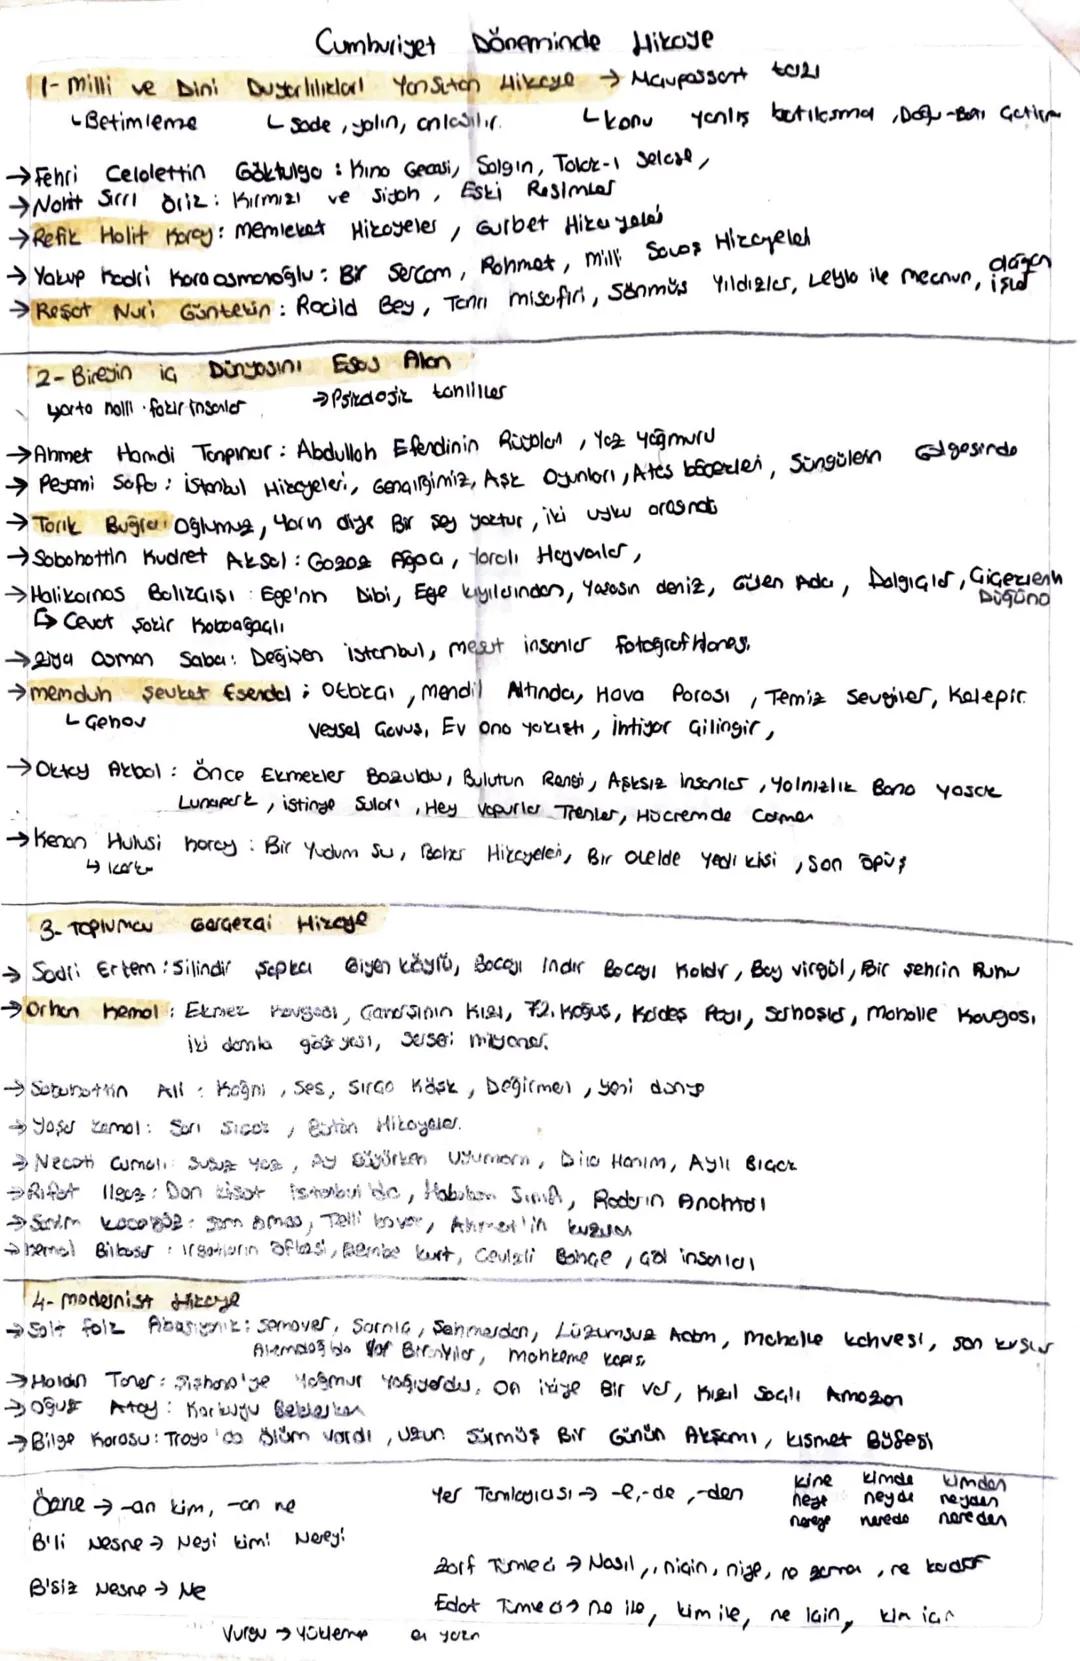 Cumhuriyet Döneminde Hikaye
1- Milli ve Dini Duyarlılıkları Yansıtan Hikaye → Maupassant tarzı
↳ Betimleme ↳ sade, yalın, anlaşılır. ↳ konu yanlış batılılaşma, Doğu-Batı
→ Fahri Celalettin Göktulga: Kına Gecesi, Salgın, Talak-ı Selase,
→ Nahit Sırrı Örik: Kırmızı ve Siyah, Eski Resimler
→ Refik Halit Karay: Memleket Hikayeler, Gurbet Hikayeleri
→ Yakup Kadri Karaosmanoğlu: Bir Sercam, Rahmet, Milli Savaş Hikayeleri
→ Reşat Nuri Güntekin: Roçild Bey, Tanrı misafiri, Sönmüş Yıldızlar, Leyla ile Mecnun, olağan işler
2- Bireyin iç Dünyasını Esas Alan
↘ yarto halli fakir insanlar → Psikolojik tahliller
→ Ahmet Hamdi Tanpınar: Abdullah Efendinin Rüyaları, Yaz yağmuru
→ Peyami Safa: istanbul Hikayeleri, Gençliğimiz, Aşk Oyunları, Ateş böcekleri, Süngülerin Gölgesinde
→ Tarık Buğra: Oğlumuz, Yarın diye Bir şey yoktur, iki uyku arasında
→ Sabahattin Kudret Aksal: Gazoz Ağacı, Yaralı Hayvanlar,
→ Halikarnas Balıkçısı: Ege'nin Dibi, Ege kıyılarından, Yaşasın deniz, Gülen Ada, Dalgıçlar, Çiçeklerin Düğünü
↳ Cevat Şakir Kabaağaçlı
→ Ziya Osman Saba: Değişen istanbul, mesut insanlar fotoğrafhanesi.
→ memduh Şevket Esendal: Otlakçı, Mendil Altında, Hava Parası, Temiz Sevgiler, Kelepir.
↳ Çehov Veysel Çavuş, Ev ona yakıştı, İhtiyar Çilingir,
→ Oktay Akbal: Önce Ekmekler Bozuldu, Bulutun Rengi, Aşksız insanlar, Yalnızlık Bana yasak
Lunapark, istinye Suları, Hey Vapurlar Trenler, Hücremde Çarmen
→ Kenan Hulusi Koray: Bir Yudum Su, Bahar Hikayeleri, Bir Otelde Yedi kişi, Son Öpüş
↳ korku
3- Toplumcu Gerçekçi Hikaye
→ Sadri Ertem: Silindir Şapka Giyen köylü, Bacayı indir Bacayı Kaldır, Bay virgül, Bir şehrin Ruhu
→ Orhan Kemal: Ekmek Kavgası, Çamaşırcının Kızı, 72. Koğuş, Kardeş Payı, Sarhoşlar, Mahalle Kavgası,
iki damla göz yaşı, Serseri milyoner.
→ Sabahattin Ali: Kağnı, Ses, Sırça Köşk, Değirmen, yeni dünya
→ Yaşar Kemal: Sarı Sıcak, Bütün Hikayeler.
→ Necati Cumalı: Susuz Yaz, Ay Büyürken Uyumam, Dila Hanım, Aylı Bıçak
→ Rıfat Ilgaz: Don kişot istanbul'da, Hababam Sınıfı, Radarın Anahtarı
→ Samim Kocagöz: Sam Amca, Telli kavak, Ahmet'in kuzuları
→ Kemal Bilbaşar: ırgatların öfkesi, Pembe kurt, Cevizli Bahçe, Göl insanları
4- Modernist Hikaye
→ Sait faik Abasıyanık: Semaver, Sarnıç, Şahmerdan, Lüzumsuz Adam, mahalle kahvesi, son kuşlar
Alemdağ'da Var Bir Yılan, mahkeme kapısı,
→ Haldun Taner: Şişhane'ye Yağmur Yağıyordu, On ikiye Bir Var, Kızıl Saçlı Amazon
→ Oğuz Atay: Korkuyu Beklerken
→ Bilge Karasu: Troya'da Ölüm vardı, Uzun Sürmüş Bir Günün Akşamı, kısmet Büfesi
Özne → -an kim, -an ne
B'li Nesne → Neyi kimi Nereyi
B'siz Nesne → Ne
Vurgu → Yükleme en yakın
Yer Tamlayıcısı → -e, -de, -den
kime kimde kimden
neye neyde neyden
nereye nerede nereden
Zarf Tümleci → Nasıl, niçin, niye, ne zaman, ne kadar
Edat Tümleci → ne ile, kim ile, ne için, kim için